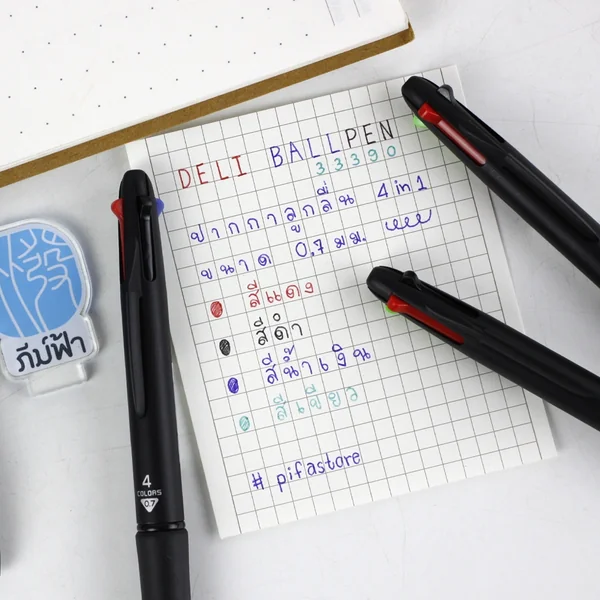 DELI BALLPEN
33390
ปากกาลูกลื่น 4 in 1
ขนาด 0.7 มม.
สีแดง
สีดำ
สีน้ำเงิน
สีเขียว
# pifastore
ภีม์ฟ้า
4
COLORS
0.7